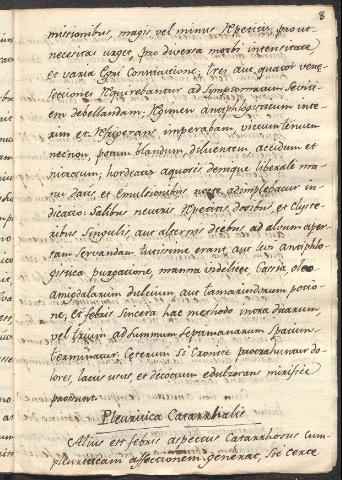 8
missionibus, magis vel minus repetitis, prout
necesitas urget, pro diversa morbi intensitate
et varia Egri Constitutione, tres aut quatuor vene
sectiones requirebantur ad Symptomatum Seviti
em debellandam, Regimen antiphlogisticum inte
rim et refrigerans imperabam, victum tenuem
necnon, potum blandum, diluentem, accidum et
nitrosum; hordeaceis aquosis denique liberale ma
nu datis et emulsionibus nocte adimplebatur in
dicatio. Salibus neutris repetitis dosibus et Clyste
ribus Singulis, aut alternis diebus, ad alvum aper
tam Servandam tutissime erant, aut levi antiphlo
gistica purgatione, manna videlicet, Cassia, oleo
amigdalarum dulcium, aut tamarindorum potio
ne, et febris sincera hac methodo intra duarum,
vel trium ad Summum Septimanarum Spatium
terminatur. Ceterum Si Cronice protrahuntur do
lores, lactis usus, et decoctum edulzorans mirifice
produnt.
Pleuritica Catarrhalis
Alius est febris aspectus Catarrhosus Cum
pleuriticam affectionem generat, Sic certe